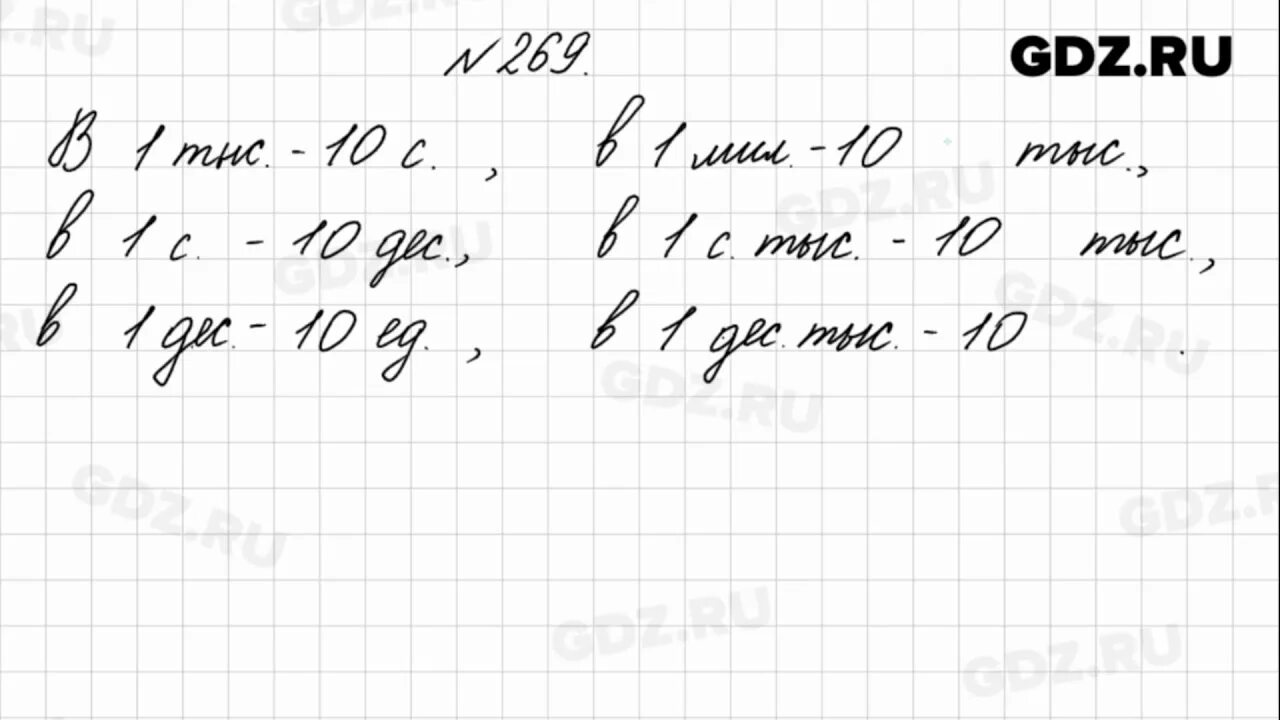 №269.
GDZ.RU
В 1 тыс. - 10 с. , в 1 мил. - 10 тыс.,
в 1 с. - 10 дес., в 1 с. тыс. - 10 тыс.,
в 1 дес. - 10 ед. , в 1 дес. тыс. - 10 .